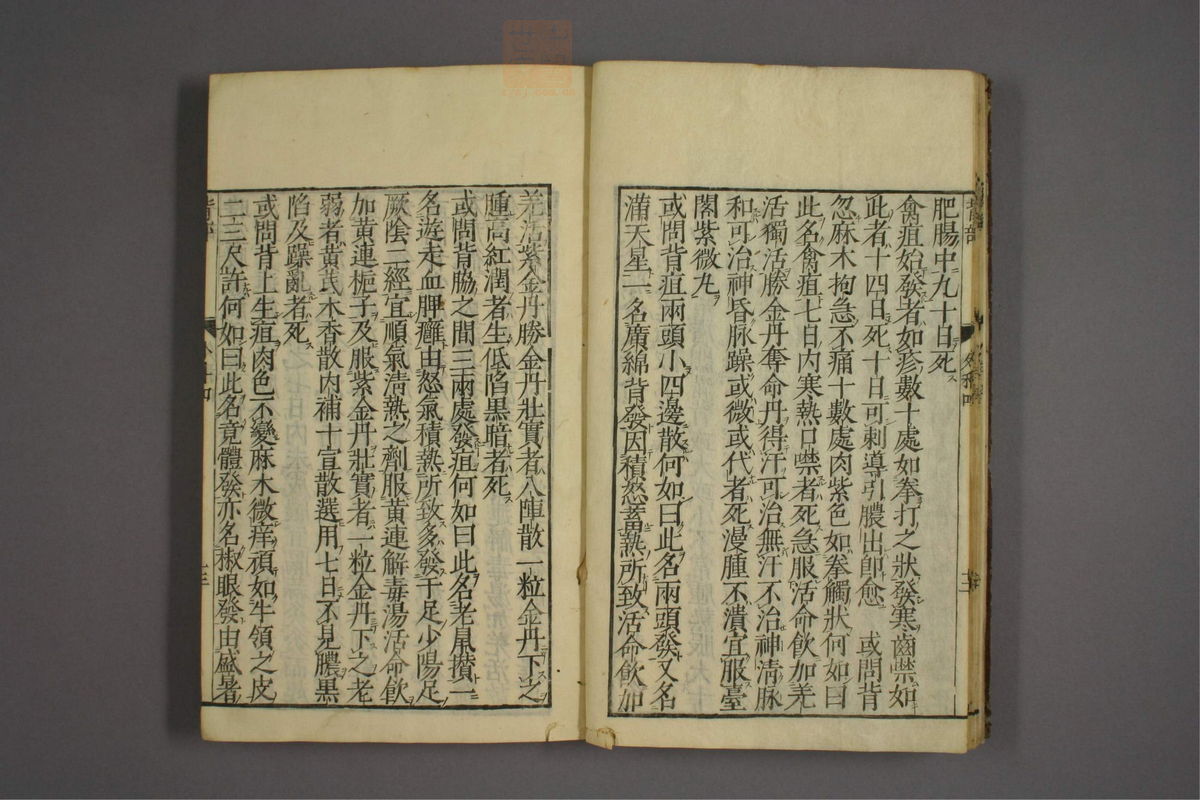 肥腸中九十日死
禽疽始發者如疹數十處如拳打之狀發寒齒噤如
此者十四日死十日可刺導引膿出卽愈　或問背
忽麻木拘急不痛十數處肉紫色如拳觸狀何如曰
此名禽疽七日內寒熱口噤者死急服活命飲加羌
活獨活勝金丹奪命丹得汗可治無汗不治神清脉
和可治神昏脉躁或微或代者死漫腫不潰宜服臺
閣紫微丸
或問背疽兩頭小四邊散何如曰此名兩頭發又名
滿天星一名廣綿背發因積怒蓄熱所致活命飲加
羌活紫金丹勝金丹壯實者八陣散一粒金丹下之
腫高紅潤者生低陷黑暗者死
或問背脇之間三兩處發疽何如曰此名老鼠攅一
名遊走血脾癰由怒氣積熱所致多發于足少陽足
厥陰二經宜順氣清熱之劑服黃連解毒湯活命飲
加黃連梔子及服紫金丹壯實者一粒金丹下之老
弱者黃芪木香散內補十宣散選用七日不見膿黑
陷及躁亂者死
或問背上生疽肉色不變麻木微痒頑如牛領之皮
二三尺許何如曰此名竟體發亦名椒眼發由感暑